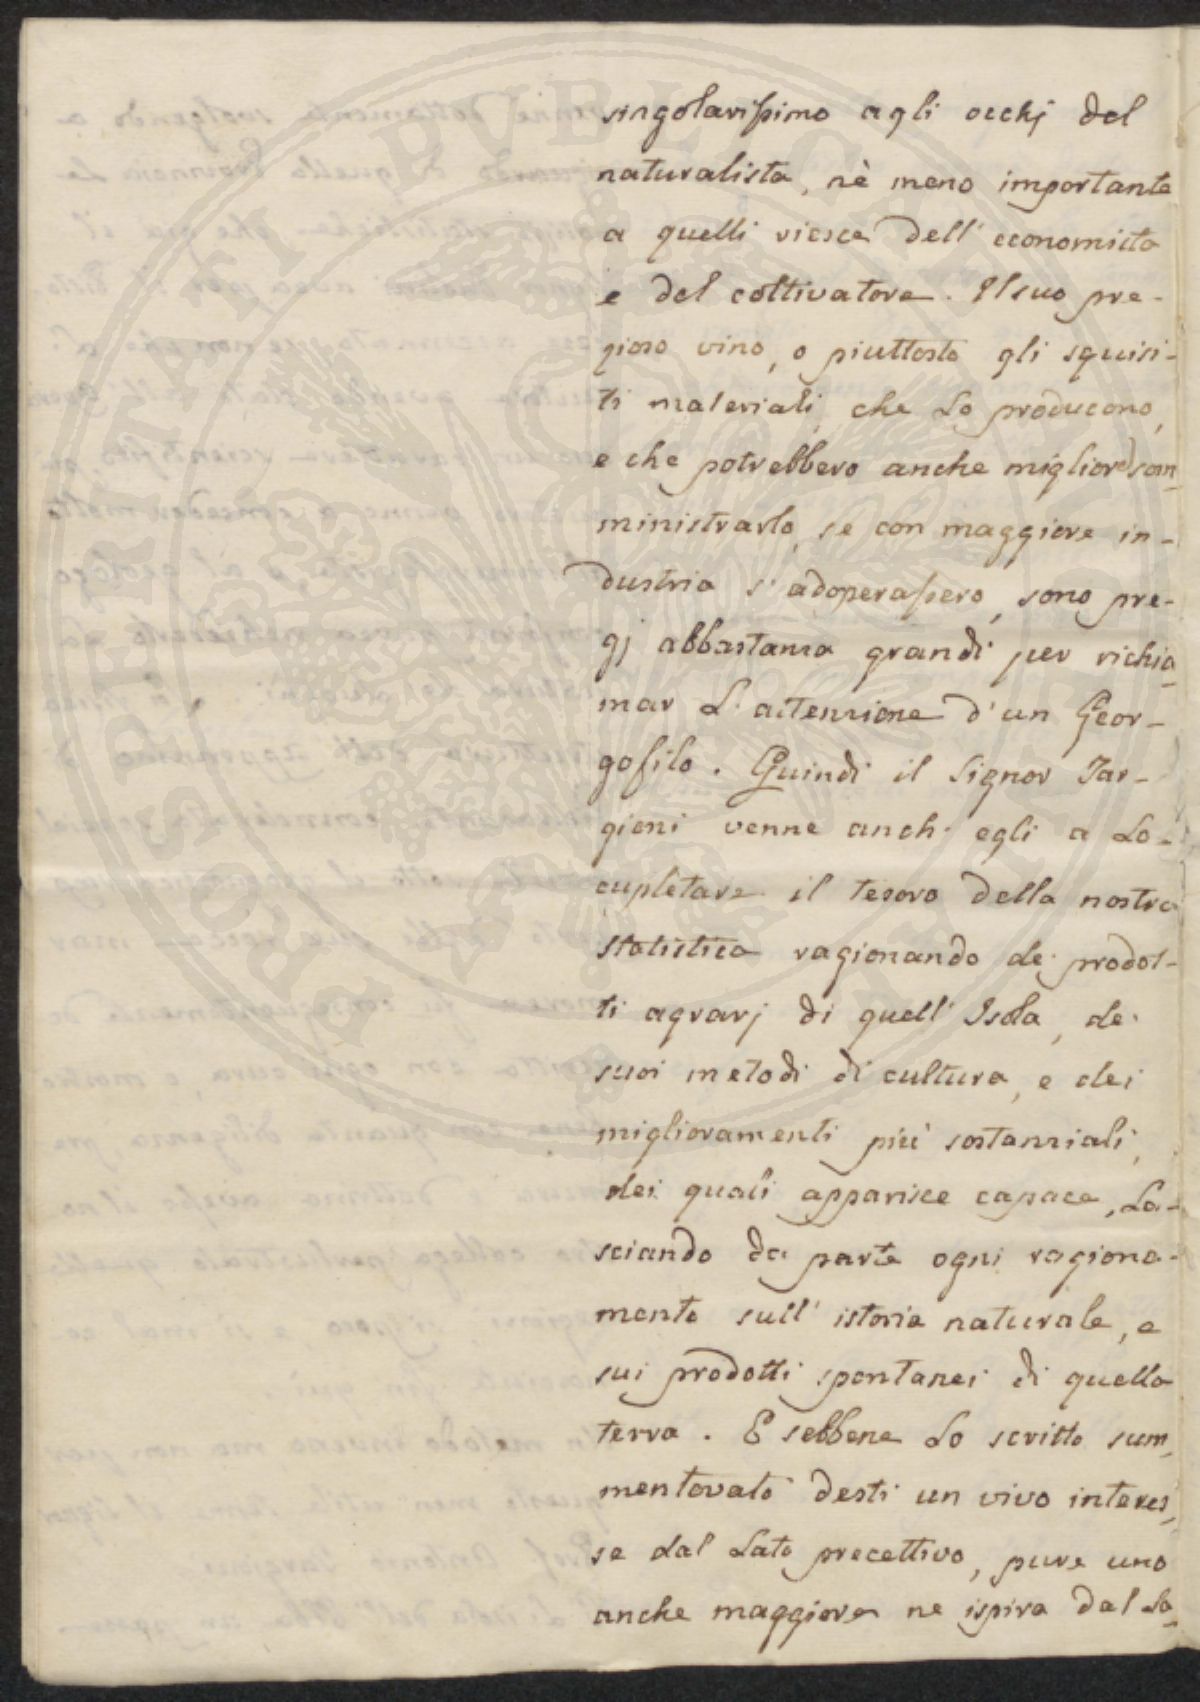 singolarissimo agli occhj del
naturalista, nè meno importante
a quelli riesce dell' economista
e del coltivatore. Il suo pre-
gioso vino, o piuttosto gli squisi-
ti materiali, che lo producono,
e che potrebbero anche migliore som-
ministrarlo, se con maggiore in-
dustria s' adoperassero, sono pre-
gj abbastanza grandi per richia-
mar l' attenzione d' un Geor-
gofilo. Quindi il Signor Tar-
gioni venne anch' egli a lo-
cupletare il tesoro della nostra
statistica ragionando de' prodot-
ti agrarj di quell' Isola, de'
suoi metodi di cultura, e dei
miglioramenti più sostanziali,
dei quali apparisce capace, la-
sciando da parte ogni ragiona-
mento sull' istoria naturale, e
sui prodotti spontanei di quella
terra. E sebbene lo scritto sum-
mentovato desti un vivo interes-
se dal lato precettivo, pure uno
anche maggiore ne ispira dal la-
PROSPERITATI PUBLICAE AUGENDAE